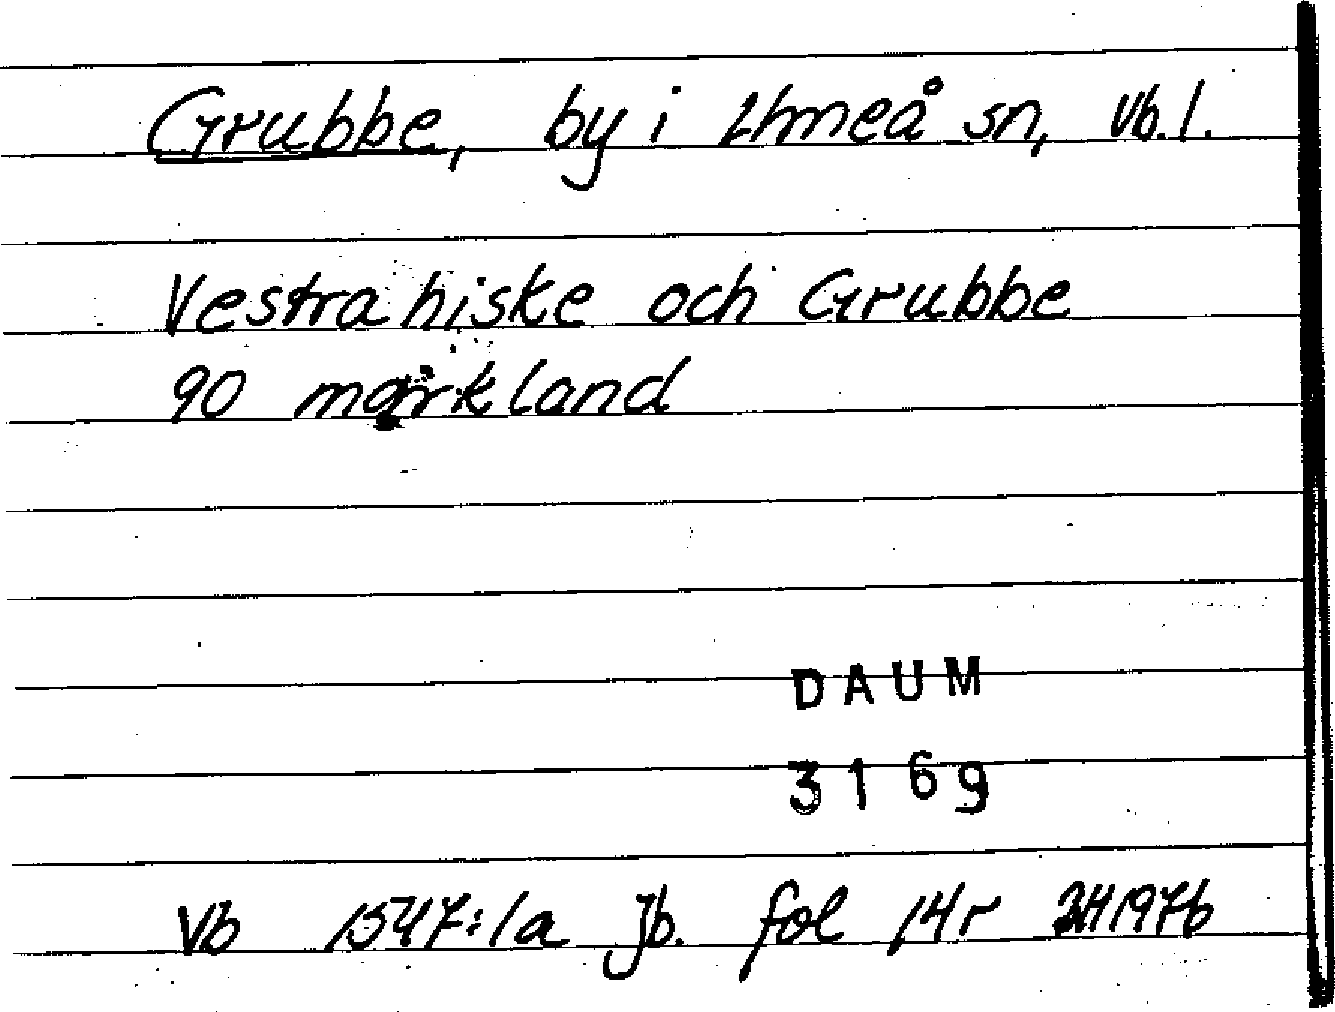 Grubbe, by i Umeå sn, Vb. l.
Vestra hiske och Grubbe
90 markland
DAUM
3169
Vb 1547:1a Jb. fol 14r JH 1976